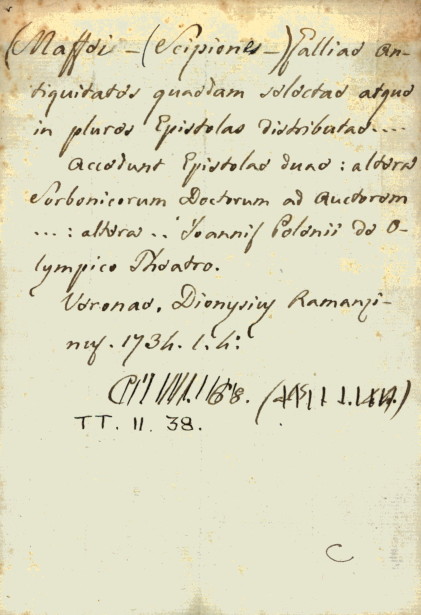 (Maffei - (Scipiones -) Galliae An-
tiquitates quaedam selectae atque
in plures Epistolas distributae....
Accedunt Epistolae duae : altera
Sorbonicorum Doctorum ad Auctorem
... : altera .. Joannis Polenii de O-
lympico Theatro.
Veronae, Dionysius Ramanzi-
nus. 1734. t. 4:
TT. II. 38.
C